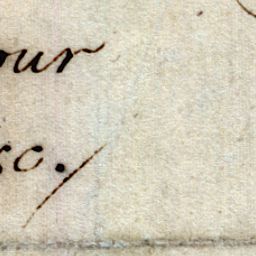 our
&c./